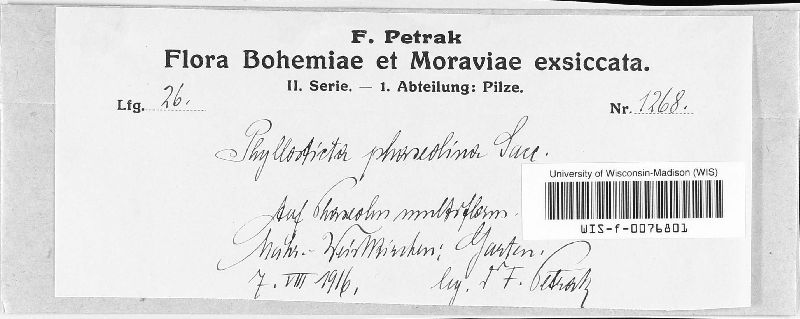 F. Petrak
Flora Bohemiae et Moraviae exsiccata.
II. Serie. — 1. Abteilung: Pilze.
Lfg. 26. Nr. 1268.
Phyllosticta phaseolina Sacc.
University of Wisconsin-Madison (WIS)
WIS-f-0076801
Auf Phaseolus multiflorus.
Mähr.-Weisskirchen: Garten.
7. VIII 1916, leg. d F. Petrak